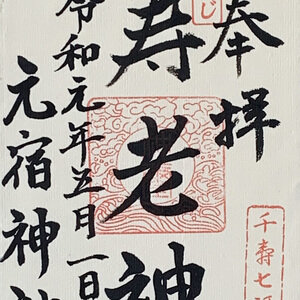 奉拝
寿老神
令和元年五月一日
元宿神社
千寿七
じ